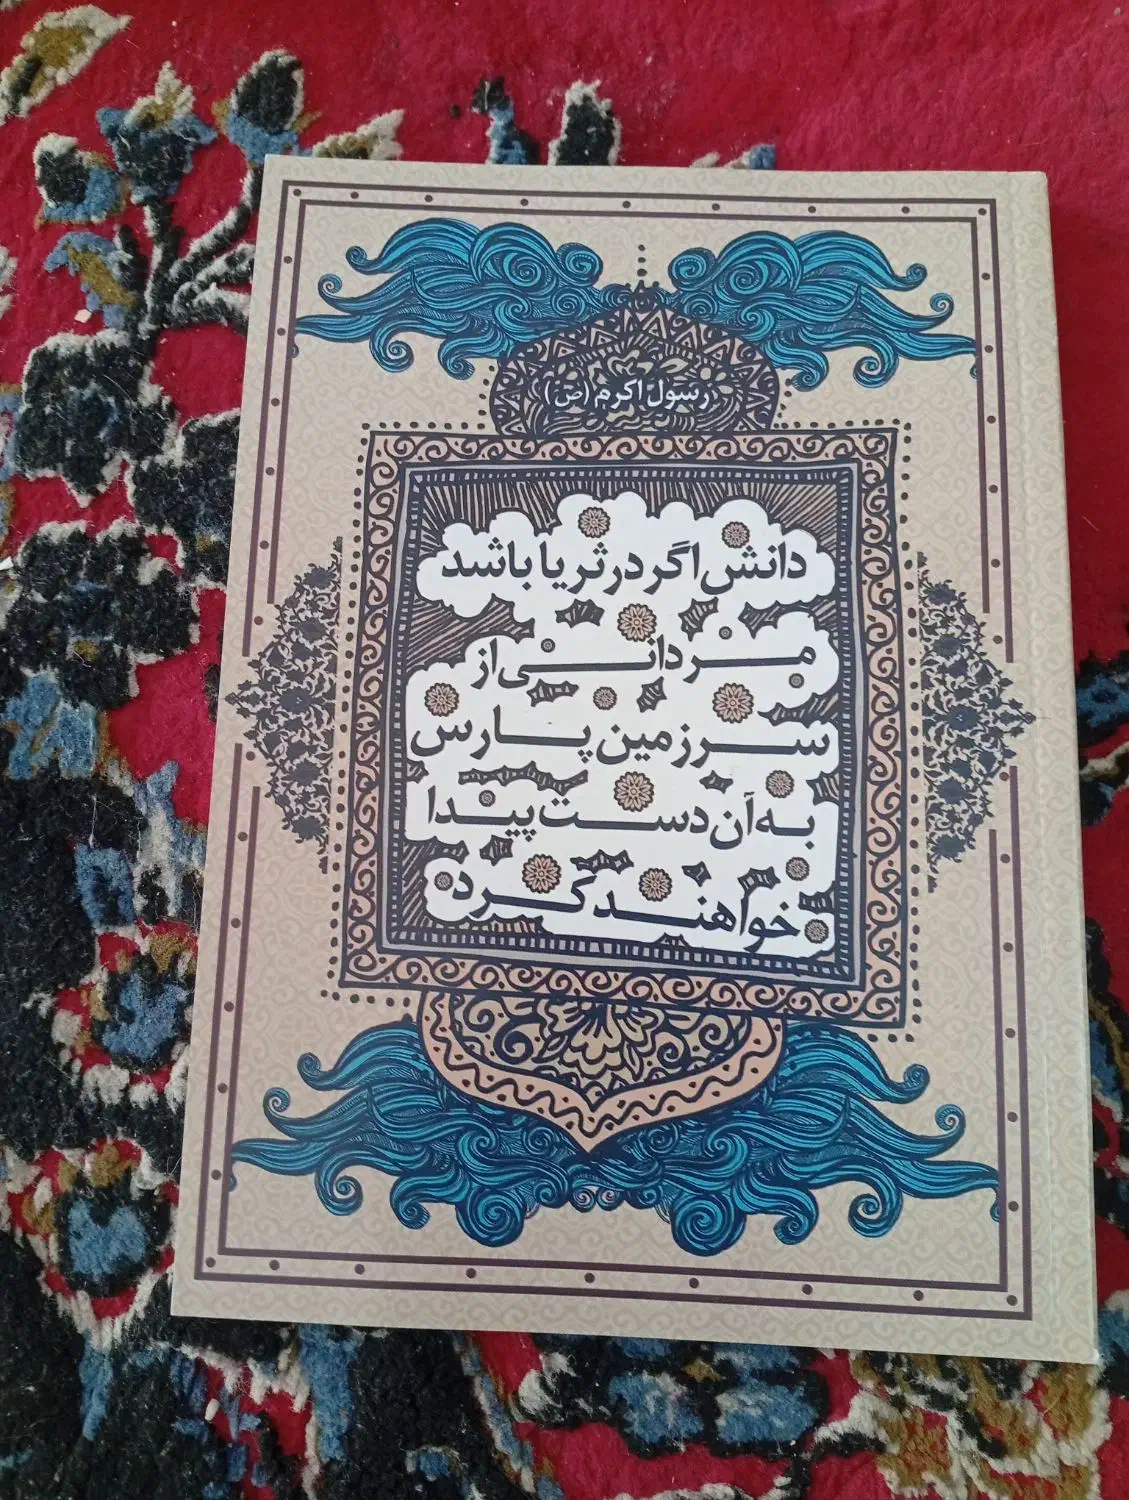 رسول اکرم (ص)
دانش اگر در ثریا باشد
مردانی از
سرزمین پارس
به آن دست پیدا
خواهند کرد